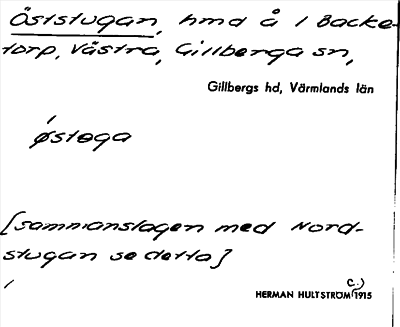 Öststugan, hmd å 1 Backe-
torp, Västra, Gillberga sn,
Gillbergs hd, Värmlands län
ǿstøga
[sammanslagen med Nord-
stugan se detta]
HERMAN HULTSTRÖM (C.) 1915